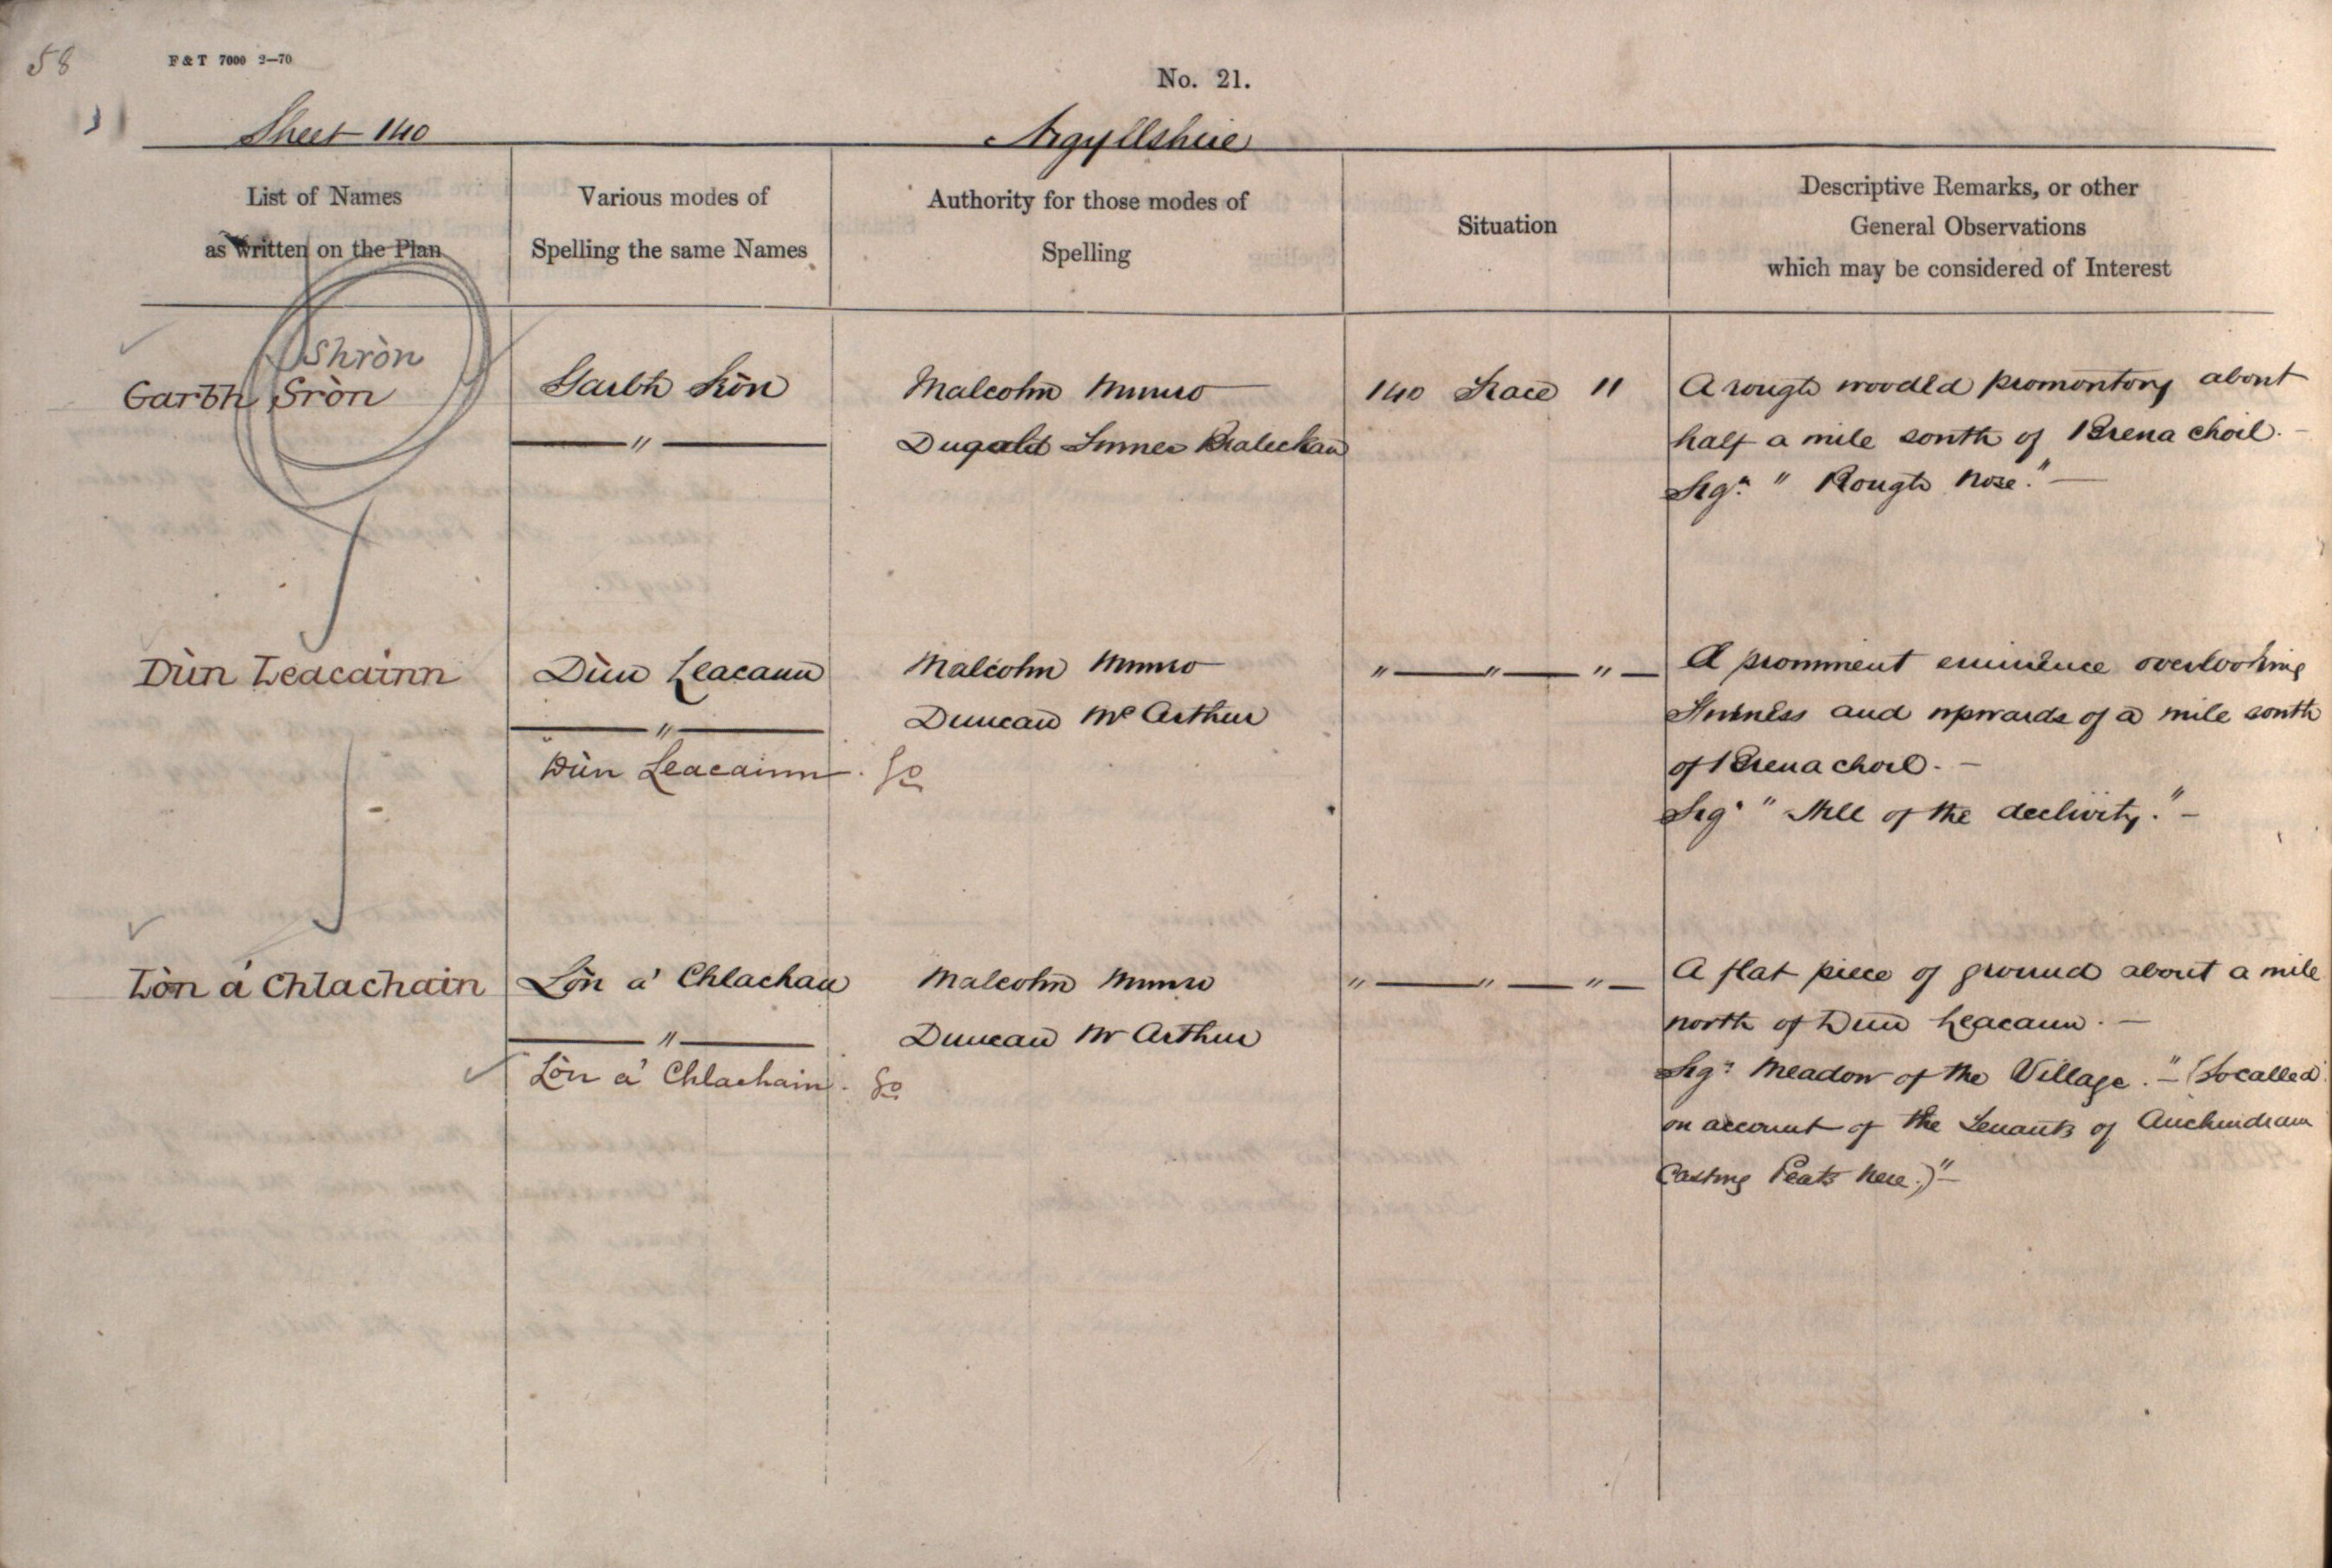 58
F & T 7000 2—70
No. 21.
Sheet 140
Argyllshire
List of Names
as written on the Plan
Various modes of
Spelling the same Names
Authority for those modes of
Spelling
Situation
Descriptive Remarks, or other
General Observations
which may be considered of Interest
Shròn
Garbh Sròn
Garbh Sròn
Malcolm Munro
140 Trace 11
A rough wooded promontory about
— " —
Dugald Sinnes Braleckan
half a mile south of Brenachoil. —
Sign. " Rough Nose." —
Dùn Leacainn
Dùn Leacann
Malcolm Munro
" — " — " —
A prominent eminence overlooking
— " —
Duncan Mc Arthur
Furness and upwards of a mile south
Dùn Leacainn.
of Brenachoil. —
Sig. " Hill of the declivity." —
Lòn a' Chlachain
Lòn a' Chlachan
Malcolm Munro
" — " — " —
A flat piece of ground about a mile
— " —
Duncan Mc Arthur
north of Dun Leacann. —
Lòn a' Chlachain.
Sign. Meadow of the Village." — (So called
on account of the Tenants of Auchindrain
Casting Peats here.)" —